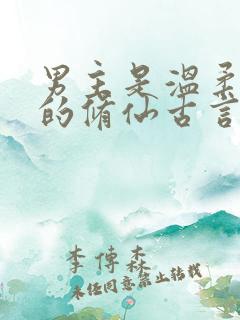 男主是温柔
的修仙古言
李傳森
未经同意禁止转载